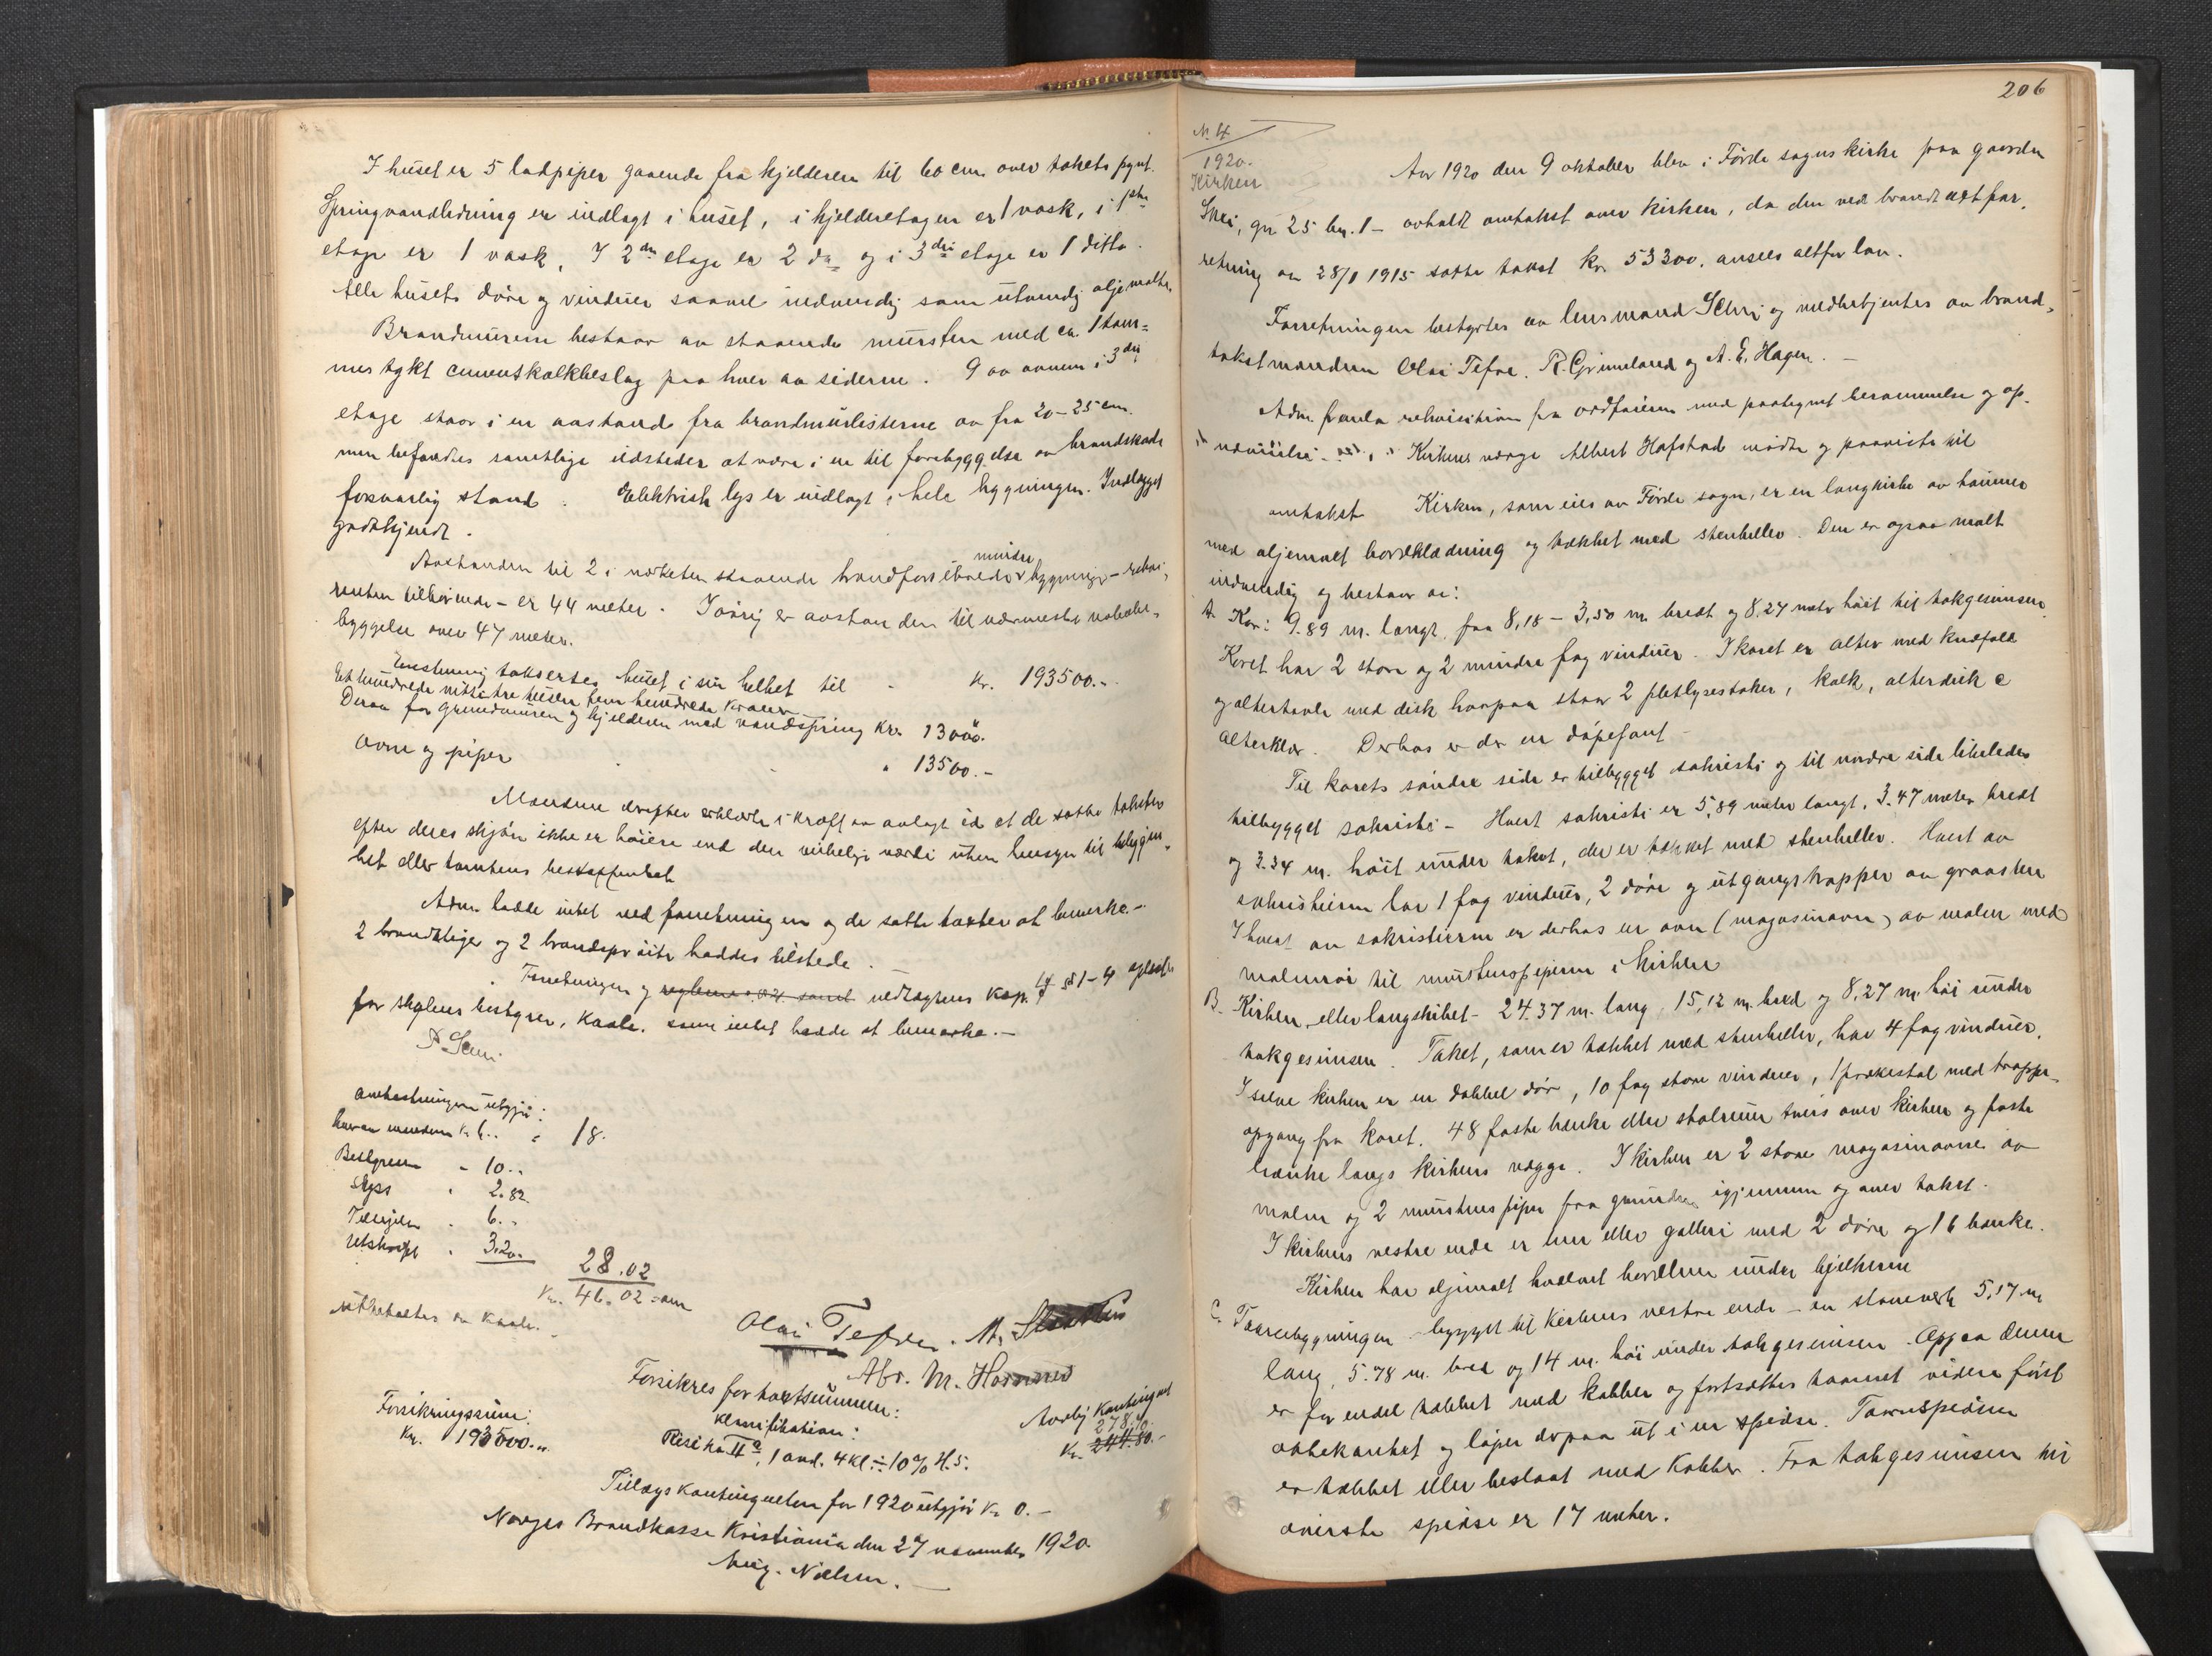 I huset er 5 ladpiper gaaende fra kjelderen til 60 cm over takets pynt.
Springvandledning er indlagt i huset, i kjelderetagen er 1 vask, i 1ste
etage er 1 vask, I 2den etage er 2 do og i 3die etage er 1 ditto.
Alle husets døre og vinduer saavel indvendig som utvendig oljemalte.
Brandmurene bestaar av staaende mursten med ca. 1 tom=
mes tykt cementkalkbeslag paa hver av siderne. 9 av ovnene i 3die
etage staar i en avstand fra brandmurlisterne av fra 20-25 cm.
men befandtes samtlige ildsteder at være i en til forebyggelse av brandskade
forsvarlig stand. Elektrisk lys er indlagt i hele bygningen. Indlægget
godkjendt.
mindre
Avstanden til 2 i nærheten staaende brandforsikrede bygninger - rekvi-
renten tilhørende - er 44 meter. Iøvrig er avstanden til nærmeste nabobe-
byggelse over 47 meter.
Enstemmig taksertes huset i sin helhet til - kr. 193500.-
Et hundrede nitti tre tusen fem hundrede kroner
Derav for grundmuren og kjelderen med vandspring kr. 13000.
Ovne og piper " 13500.-
Mændene derefter erklærte i kraft av avlagt ed at de satte takster
efter deres skjøn ikke er høiere end den virkelige værdi uten hensyn til beliggen-
het eller tomtens beskaffenhet
Adm. hadde intet ved forretningen og de satte takster at bemerke.-
2 brandstiger og 2 brandsprøite haddes tilstede.
Forretningen og vedtægtens kap. 4 §§ 1-4 oplæstes
for skolens bestyrer, Kaale. som intet hadde at bemerke.-
Omkostningene utgjør:
hver av mændene kr. 6.. " 18.
Bestyreren " 10..
Skyss " 2.82
Tællegjelen " 6..
Utskrift " 3.20.
28.02
Kr. 46.02
utbetaltes av Kaale.
Olai Tefre. A.
Abr. M. Hornnes
Forsikres for takstsummen:
Forsikringssum: Klassifikation: Aarlig Kontingent
Kr. 193500.- Risiko IIa, 1 avd. 4 kl. ÷ 10% H.S. 278.
Kr. 244.80.-
Tillægskontingenten for 1920 utgjør Kr. 0.-
Norges Brandkasse Kristiania den 27 november 1920.
Aug. Nielsen.
206
N. 4
1920.
Kirken
Aar 1920 den 9 oktober blev i Førde sogns kirke paa gaarden
Skei, gn 25 bn. 1 - avholdt omtakst over kirken, da den ved brandtakstfor-
retning av 28/8 1915 satte takst kr. 53300. ansees altfor lav.
Forretningen bestyrtes av lensmand Seim og medbetjentes av brand-
takstmændene Olai Tefre. R. Grimeland og A. E. Hagen. -
Adm. fremla rekvisition fra ordføreren med paategnet berammelse og op-
nævnelse. Kirkeverge Albert Hafstad møtte og paaviste til
omtakst Kirken, som eies av Førde sogn, er en langkirke av tømmer
med oljemalt bordklædning og tækket med stenheller. Den er ogsaa malt
indvendig og bestaar av:
A. Kor: 9.89 m. langt, fra 8,18 - 3,50 m. bredt og 8.27 meter høit til takgesimsen.
Koret har 2 store og 2 mindre fag vinduer. I koret er alter med knæfald
og altertavle med disk hvorpaa staar 2 pletlysestaker, kalk, alterdisk &
alterklæ. Derhos er der en døpefont -
Til korets søndre side er tilbygget sakristi og til nordre side likeledes
tilbygget sakristi - Hvert sakristi er 5,89 meter langt, 3.47 meter bredt
og 3.34 m. høit under taket, der er tækket med stenheller. Hvert av
sakristierne har 1 fag vinduer, 2 døre og utgangstrapper av graasten
I hvert av sakristierne er derhos en ovn (magasinovn) av malm med
malmrør til murstenspiperne i kirken
B. Kirken eller langskibet - 24.37 m. lang, 15,12 m. bred og 8,27 m. høi under
takgesimsen. Taket, som er tækket med stenheller, har 4 fag vinduer.
I selve kirken er en dobbel dør, 10 fag store vinduer, 1 prækestol med trappe-
opgang fra koret. 48 faste bænke eller stolreuer tvers over kirken og faste
bænke langs kirkens vægge. I kirken er 2 store magasinovne av
malm og 2 murstenspiper fra grunden igjennem og over taket.
I kirkens vestre ende er lem eller galleri med 2 døre og 16 bænke.
Kirken har oljemalt hvælvet bordlem under bjelkerne
C. Taarnbygningen - bygget til kirkens vestre ende - en staveverk 5,17 m
lang, 5.78 m. bred og 14 m. høi under takgesimsen. Oppaa denne
er for endel tækket med kobber og fortsættes taarnet videre først
ottekantet og løper derpaa ut i en spidse. Taarnspidsen
er tækket eller beslaat med Kobber. Fra takgesimsen til
øverste spidse er 17 meter.